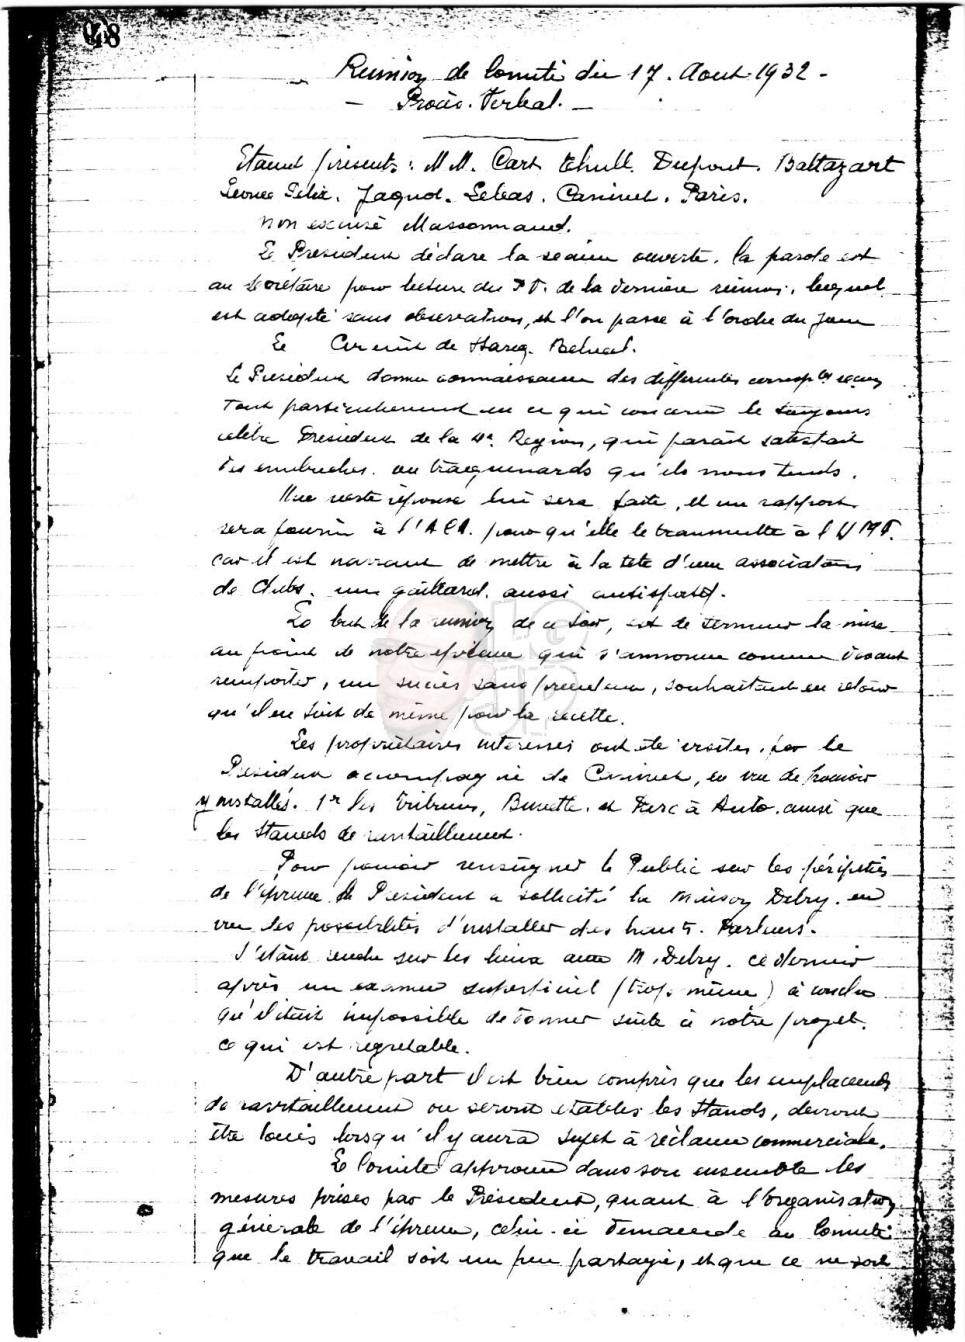 048
Reunion de Comité du 17. Aout 1932 -
- Procès. Verbal. -
Etaient présents : M M. Cart Thull. Dupont. Baltazart
Leonce Felix. Jaquot. Lebas. Caninet. Paris.
non excusé Massonnaud.
Le President déclare la séance ouverte. la parole est
au secrétaire pour lecture du P V. de la dernière réunion, lequel
est adopté sans observation, et l'on passe à l'ordre du jour
Le Circuit de
Le President donne connaissance des differentes reçues
Tout particulierement en ce qui concerne le toujours
celèbre President de la 4e. Region, qui parait satisfait
des embuches. ou traquenards qu'ils nous tends.
Une verte réponse lui sera faite, et un rapport
sera fourni à l'A C A. pour qu'elle le transmette à l'
car il est navrant de mettre à la tête d'une association
de Clubs. un gaillard. aussi antisportif.
Le but de la reunion de ce soir, est de terminer la mise
au point de notre épreuve qui s'annonce comme devant
remporter, un succès sans precedent, souhaitant en retour
qu'il en soit de même pour la recette.
Les propriétaires interessés ont été visités. par le
President accompagné de Caninet, en vue de pouvoir
y installés. 1er les tribunes, Buvette. et Parc à Auto. ainsi que
les Stands de ravitaillement.
Pour pouvoir renseigner le Public sur les péripéties
de l'épreuve le President a sollicité la Maison Debry. en
vue les possibilités d'installer des hauts. Parleurs.
S'étant rendu sur les lieux avec M. Debry. ce dernier
après un examen superficiel (trop même) à conclu
qu'il était impossible de donner suite à notre projet.
ce qui est regretable.
D'autre part il est bien compris que les emplacements
de ravitaillement ou seront établis les Stands, devront
être loués lorsqu'il y aura sujet à réclame commerciale.
Le Comité approuve dans son ensemble les
mesures prises par le Président, quant à l'organisation
générale de l'épreuve, celui-ci demande au Comité
que le travail soit un peu partagé, et que ce ne soit